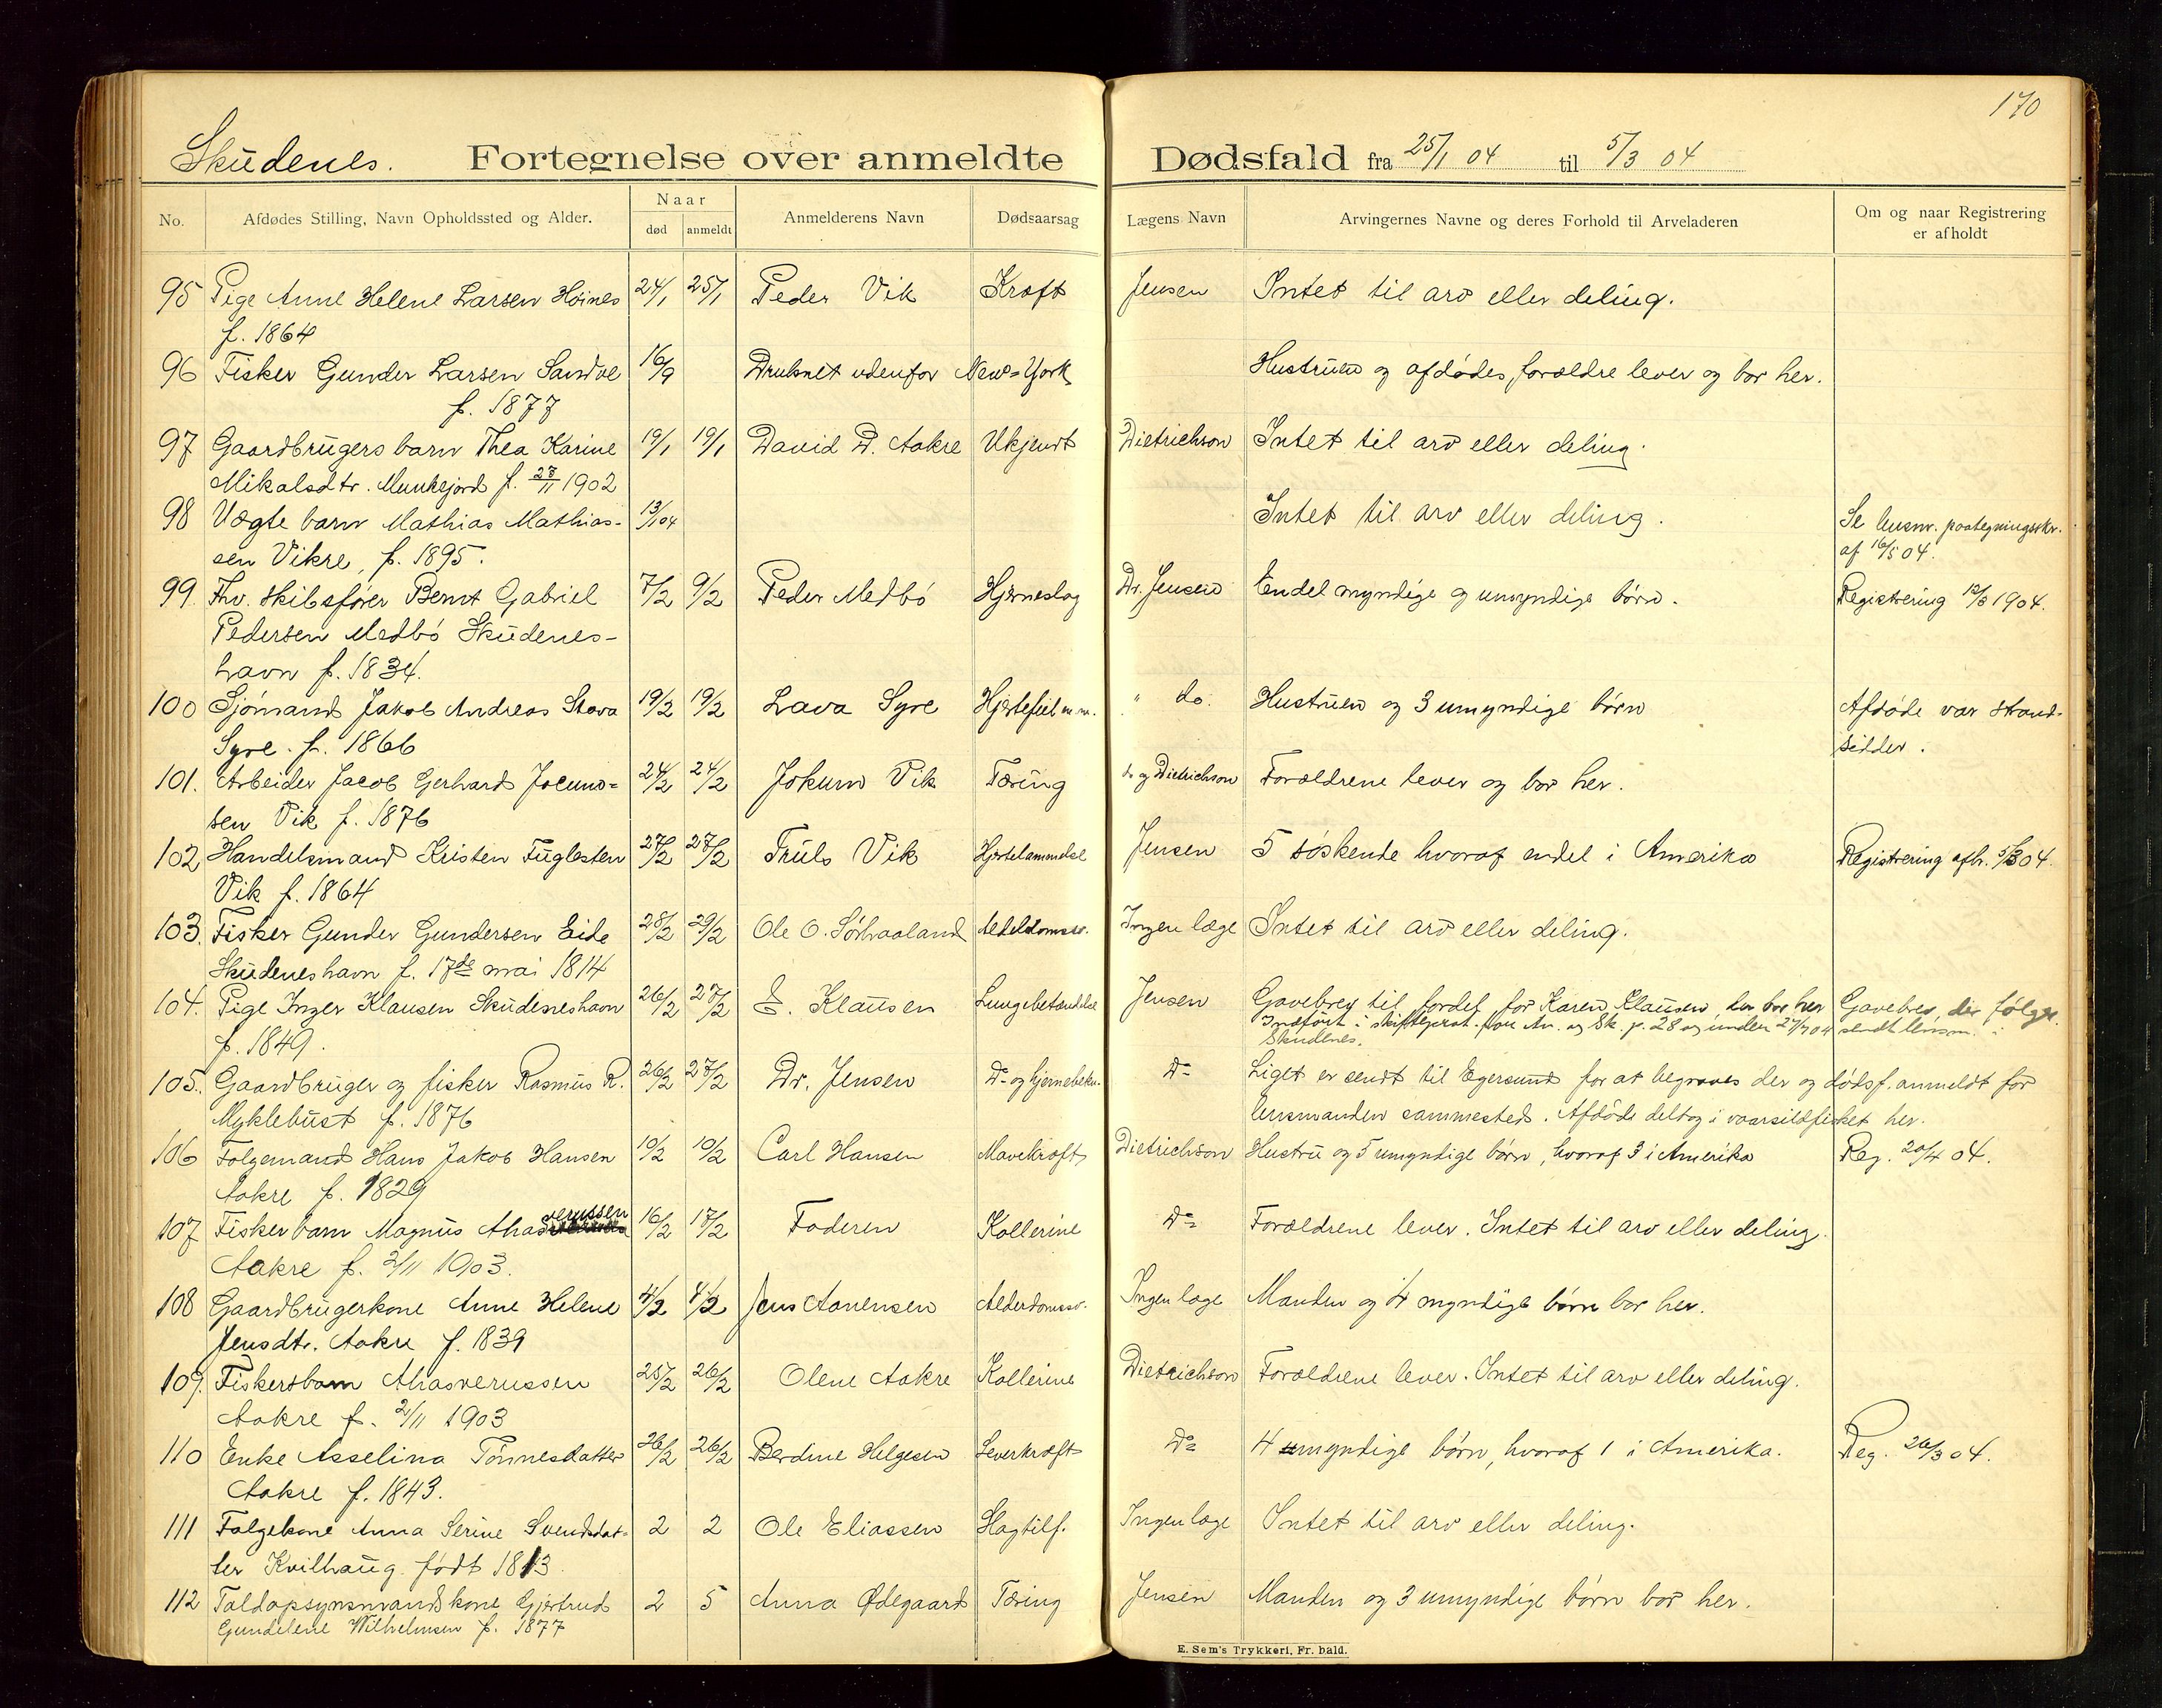 170
Skudenes. Fortegnelse over anmeldte Dødsfald fra 25/1 04 til 5/3 04
No. Afdødes Stilling, Navn Opholdssted og Alder. Naar død anmeldt Anmelderens Navn Dødsaarsag Lægens Navn Arvingernes Navne og deres Forhold til Arveladeren Om og naar Registrering er afholdt
95 Pige Anne Helene Larsen Høines 24/1 25/1 Peder Vik Kræft Jensen Intet til arv eller deling.
f. 1864
96 Fisker Gunder Larsen Sandve 16/9 Druknet udenfor New=York Hustruen og afdødes forældre lever og bor her.
f. 1877
97 Gaardbrugers barn Thea Karine 19/1 19/1 David D. Aakre Ukjendt Dietrichson Intet til arv eller deling.
Mikalsdtr. Munkejord f. 28/11 1902
98 Vægte barn Mathias Mathias- 13/1 04 Intet til arv eller deling. Se lensm. paategningsskr.
sen Vikre, f. 1895. af 16/5 04.
99. Fhv. skibsfører Bernt Gabriel 7/2 9/2 Peder Medbø Hjerneslag Dr. Jensen Endel myndige og umyndige børn. Registrering 12/3 1904.
Pedersen Medbø Skudenes-
havn f. 1834.
100 Sjømand Jakob Andreas Stava 19/2 19/2 Lava Syre Hjertefeil m.m. " do. Hustruen og 3 umyndige børn Afdøde var strand-
Syre. f. 1866 sidder.
101. Arbeider Jacob Gerhard Jocum= 24/2 24/2 Jokum Vik Tæring do og Dietrichson Forældrene lever og bor her.
sen Vik f. 1876
102 Handelsmand Kristen Fuglesten 27/2 27/2 Truls Vik Hjertelammelse Jensen 5 søskende hvoraf endel i Amerika Registrering afh. 5/3 04.
Vik f. 1864
103. Fisker Gunder Gundersen Eide 28/2 29/2 Ole O. Sørhaaland Aldeldomssv. Ingen læge Intet til arv eller deling.
Skudeneshavn f. 17de mai 1814
104. Pige Inger Klausen Skudeneshavn 26/2 27/2 E. Klausen Lungebetændelse Jensen Gavebrev til fordel for Karen Klausen, der bor her Gavebrev, der følger
f. 1849. Indført i skifteprot. for Av. og Sk. p. 28 og under 27/7 04 sendt lensm. i
Skudenes.
105. Gaardbruger og fisker Rasmus R. 26/2 27/2 Dr. Jensen Do og hjernebetæn. Do Liget er sendt til Egersund for at begraves der og dødsf. anmeldt for
Myklebust f. 1876 lensmanden sammesteds. Afdøde deltog i vaarsildfisket her.
106 Folgemand Hans Jakob Hansen 10/2 10/2 Carl Hansen Mavekræft Dietrichson Hustru og 5 umyndige børn, hvoraf 3 i Amerika Reg. 20/4 04.
Aakre f. 1829
107 Fisker barn Magnus Ahasverussen 16/2 17/2 Faderen Kollerine Do Forældrene lever. Intet til arv eller deling.
Aakre f. 2/11 1903.
108 Gaardbrugerkone Anne Helene 4/2 4/2 Jens Aanensen Alderdomssv. Ingen læge Manden og 4 myndige børn bor her.
Jensdtr. Aakre f. 1839
109. Fiskersbarn Ahasverussen 25/2 26/2 Olene Aakre Kollerine Dietrichson Forældrene lever. Intet til arv eller deling.
Aakre f. 2/11 1903
110 Enke Asselina Tønnesdatter 26/2 26/2 Berdine Helgesen Leverkræft Do 4 myndige børn, hvoraf 1 i Amerika. Reg. 26/3 04.
Aakre f. 1843.
111 Folgekone Anna Serine Svendsdat- 2 2 Ole Eliassen Slagtilf. Ingen læge Intet til arv eller deling.
ter Kvilhaug født 1813.
112 Toldopsynsmandskone Gjertrud 2 5 Anna Ødegaard Tæring Jensen Manden og 3 umyndige børn bor her.
Gundelene Wilhelmsen f. 1877
E. Sem's Trykkeri, Fr. hald.